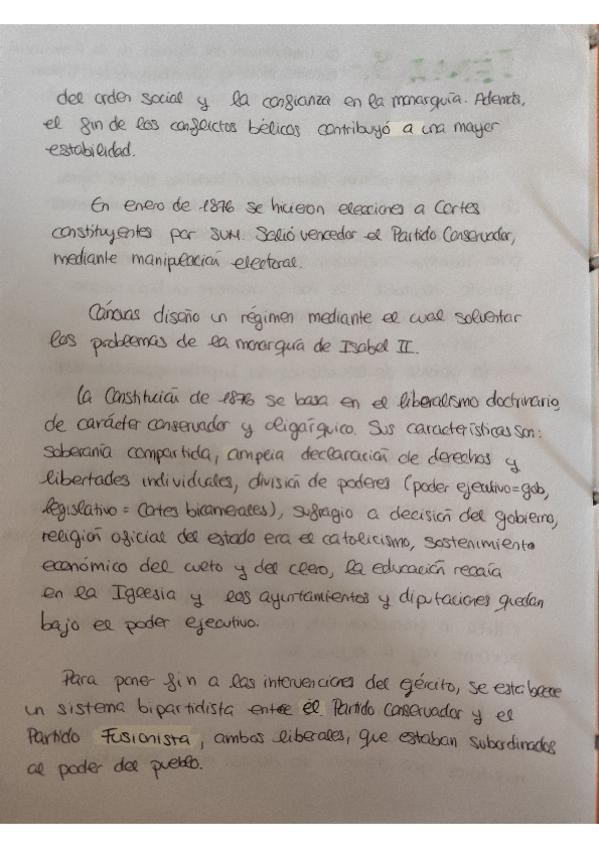 del orden social y la confianza en la monarquía. Además,
el fin de los conflictos bélicos contribuyó a una mayor
estabilidad.
En enero de 1876 se hicieron elecciones a Cortes
constituyentes por SUM. Salió vencedor el Partido Conservador,
mediante manipulación electoral.
Cánovas diseño un régimen mediante el cual solventar
los problemas de la monarquía de Isabel II.
La Constitución de 1876 se basa en el liberalismo doctrinario,
de carácter conservador y oligárquico. Sus características son:
soberanía compartida, amplia declaración de derechos y
libertades individuales, división de poderes (poder ejecutivo=gob,
legislativo = Cortes bicamerales), sufragio a decisión del gobierno,
religión oficial del estado era el catolicismo, sostenimiento
económico del culto y del clero, la educación recaía
en la Iglesia y los ayuntamientos y diputaciones quedan
bajo el poder ejecutivo.
Para poner fin a las intervenciones del ejército, se establece
un sistema bipartidista entre el Partido Conservador y el
Partido Fusionista, ambos liberales, que estaban subordinados
al poder del pueblo.